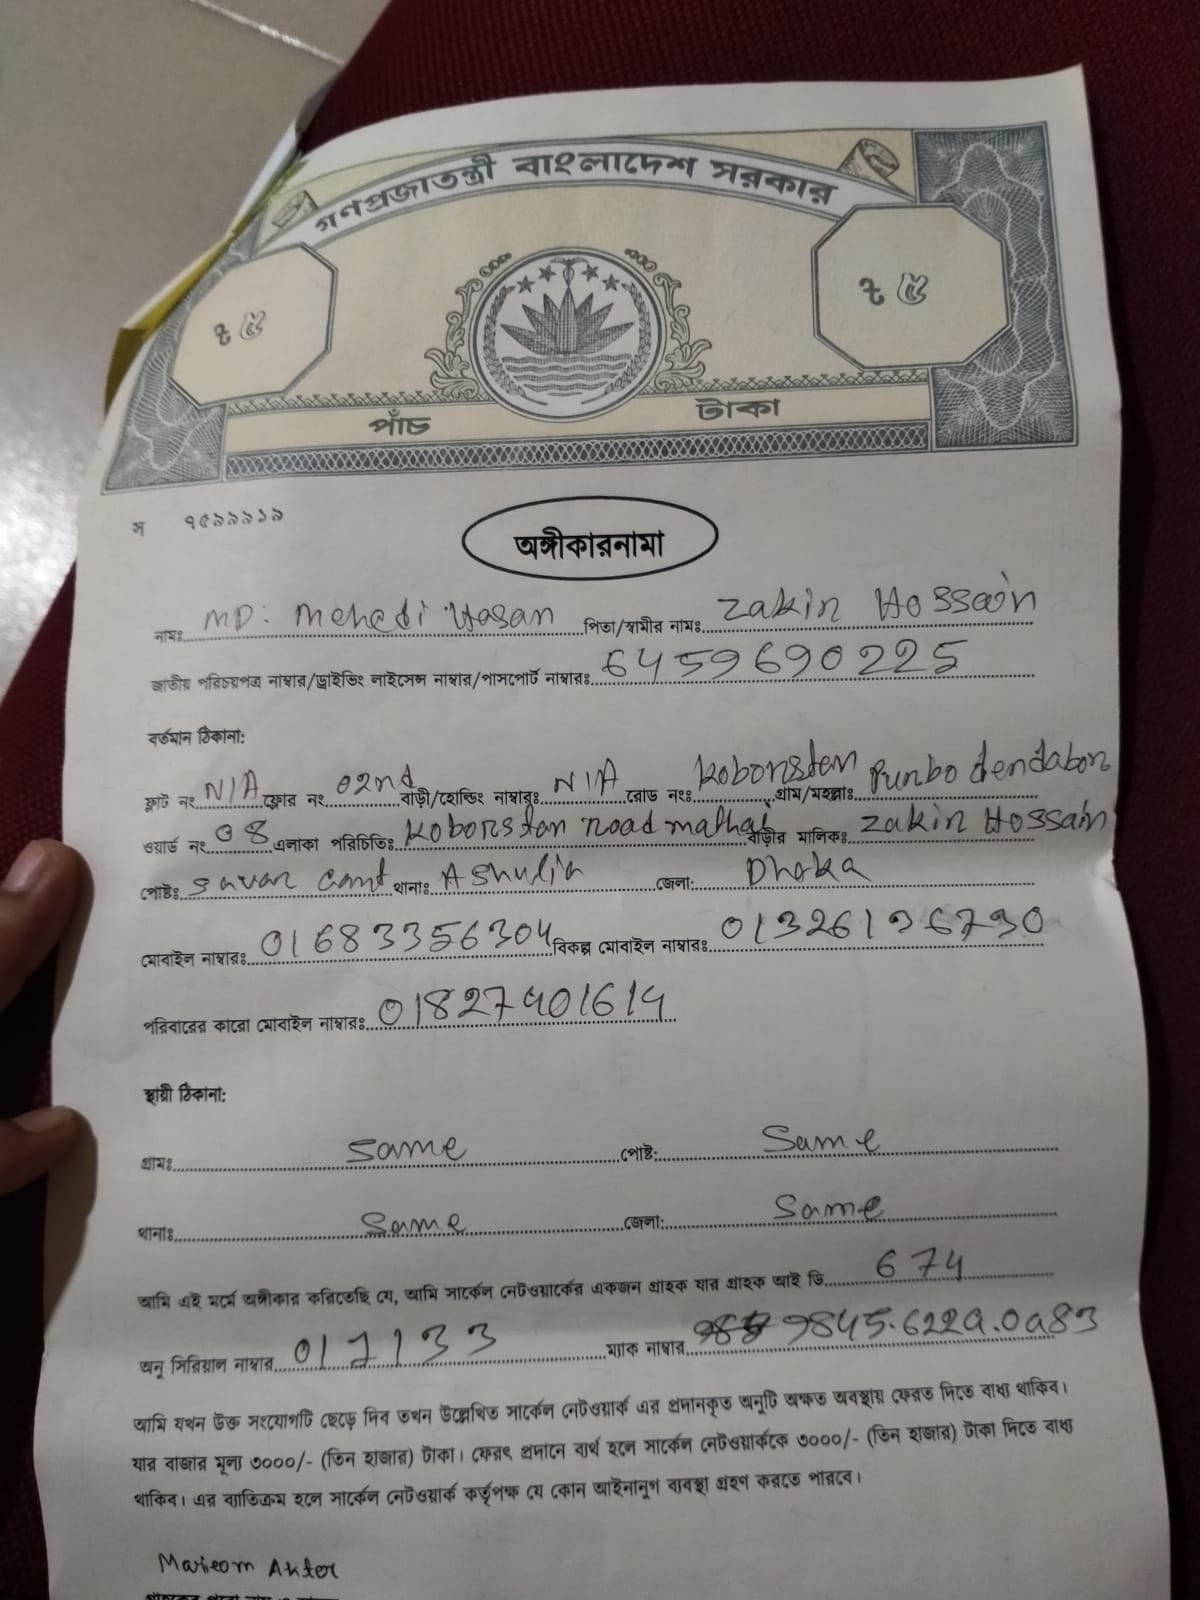 গণপ্রজাতন্ত্রী বাংলাদেশ সরকার
৳ ৫ ৳ ৫
পাঁচ টাকা
স ৭৫৯৯৯১৯
অঙ্গীকারনামা
নামঃ MD: Mehedi Hasan পিতা/স্বামীর নামঃ Zakin Hossain
জাতীয় পরিচয়পত্র নাম্বার/ড্রাইভিং লাইসেন্স নাম্বার/পাসপোর্ট নাম্বারঃ 6459690225
বর্তমান ঠিকানা:
ফ্লাট নং N/A ফ্লোর নং 02nd বাড়ী/হোল্ডিং নাম্বারঃ N/A রোড নংঃ Kobonstan গ্রাম/মহল্লাঃ Punbo dendabon
ওয়ার্ড নং 08 এলাকা পরিচিতিঃ Kobonstan road mathat বাড়ীর মালিকঃ Zakin Hossain
পোষ্টঃ Savar Cant থানাঃ Ashulia জেলা: Dhaka
মোবাইল নাম্বারঃ 01683356304 বিকল্প মোবাইল নাম্বারঃ 01326196790
পরিবারের কারো মোবাইল নাম্বারঃ 01827901614
স্থায়ী ঠিকানা:
গ্রামঃ same পোষ্ট: Same
থানাঃ Same জেলা: Same
আমি এই মর্মে অঙ্গীকার করিতেছি যে, আমি সার্কেল নেটওয়ার্কের একজন গ্রাহক যার গ্রাহক আই ডি 674
অনু সিরিয়াল নাম্বার 017133 ম্যাক নাম্বার 9845.622a.0a83
আমি যখন উক্ত সংযোগটি ছেড়ে দিব তখন উল্লেখিত সার্কেল নেটওয়ার্ক এর প্রদানকৃত অনুটি অক্ষত অবস্থায় ফেরত দিতে বাধ্য থাকিব।
যার বাজার মূল্য ৩০০০/- (তিন হাজার) টাকা। ফেরৎ প্রদানে ব্যর্থ হলে সার্কেল নেটওয়ার্ককে ৩০০০/- (তিন হাজার) টাকা দিতে বাধ্য
থাকিব। এর ব্যাতিক্রম হলে সার্কেল নেটওয়ার্ক কর্তৃপক্ষ যে কোন আইনানুগ ব্যবস্থা গ্রহণ করতে পারবে।
Marieom Akter